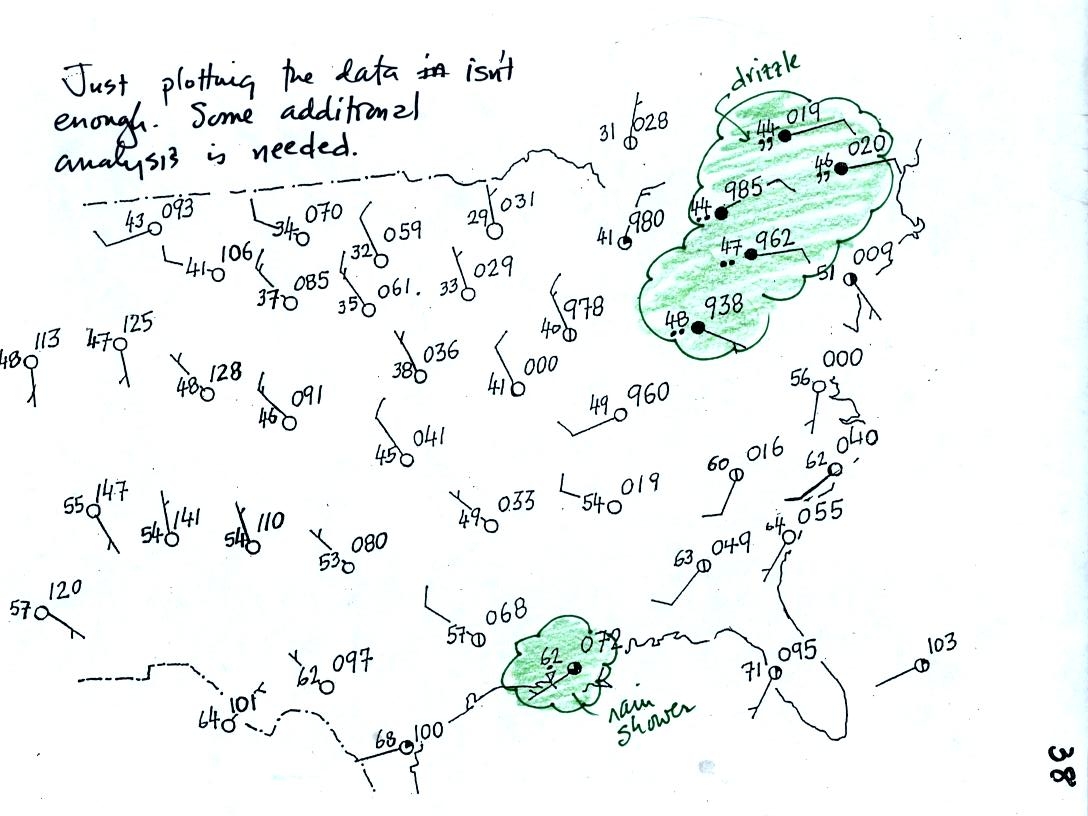 Just plotting the data in isn't
enough. Some additional
analysis is needed.
drizzle
31 028
44 019
46 020
44 985
43 093
34 070
29 031
32 059
41 980
47 962
51 009
41 106
37 085
35 061.
33 029
40 978
48 938
48 113
47 125
48 128
38 036
41 000
56 000
46 091
49 960
45 041
60 016
62 040
55 147
54 141
54 110
49 033
54 019
64 055
53 080
63 049
57 120
57 068
62 072
62 097
71 095
103
64 101
rain
shower
68 100
38